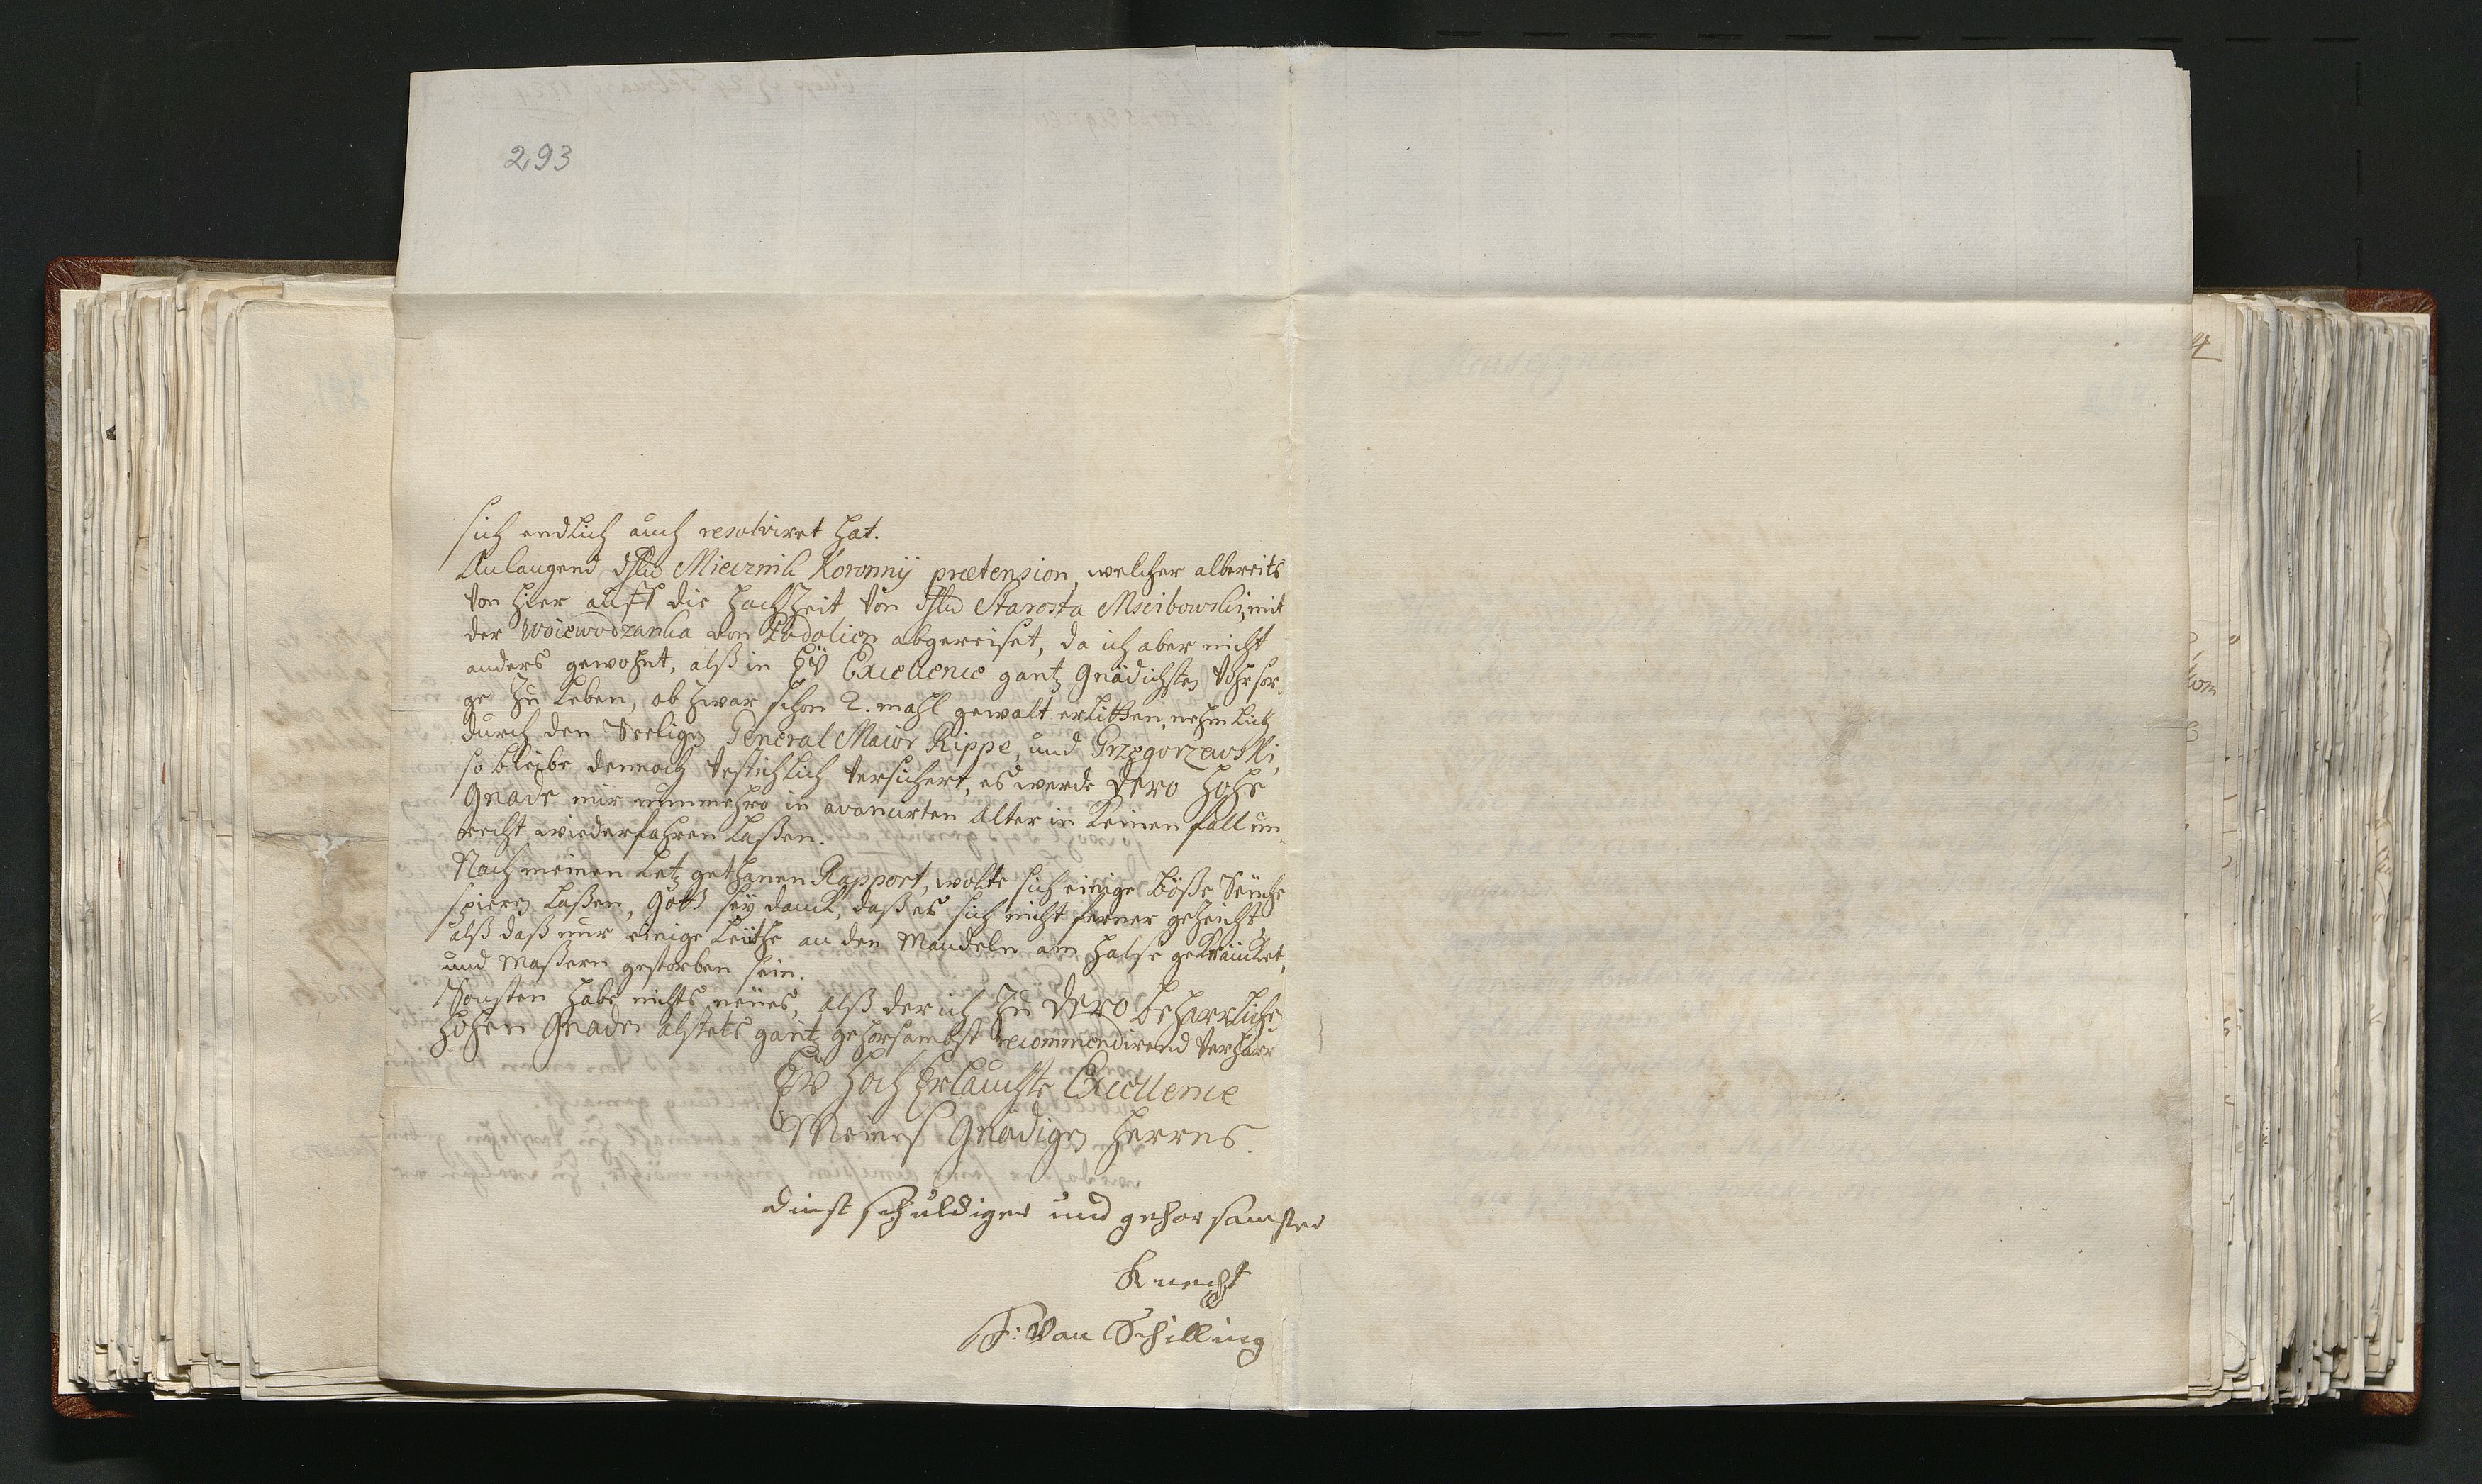 293
sich endlich auch resolviret hat.
Anlangend dhl Miecznik Koronnÿ prætension, welcher albereits
von hier auff die HochZeit von dhl Starosta Mscibowski, mit
der Woiewodzanka von Podolien abgereiset, da ich aber nicht
anders gewohnt, alß in Eü Excellence gantz Gnädichsten Vohrsor-
ge zu Leben, ob zwar schon 2. mahl gewalt erlitten, nehmlich
durch den Seeligen General Maior Rippe, und Grzegorzewski,
so bleibe dennoch vestichlich versichert, es werde Dero Hohe
Gnade mir nunmehro in avancirten Alter in Keinen fall un-
recht wiederfahren Laßen.
Nach meinen Letz gethanen Rapport, wolte sich einige böße Seüche
spieren Laßen, Gott seÿ danck, daß es sich nicht ferner gezeicht,
alß daß nur einige Leüthe an den Mandeln am Halse gekräncket,
und Maßern gestorben sein.
Sonsten habe nichts neües, alß der ich zu Dero beharrliche
Hohen Gnaden alstets gantz gehorsambst recommendirend verharr
Eü Hoch Erlauchte Excellence
Meines Gnädigen Herrns.
dinst schuldiger und gehorsamster
Knecht
F: Van Schilling